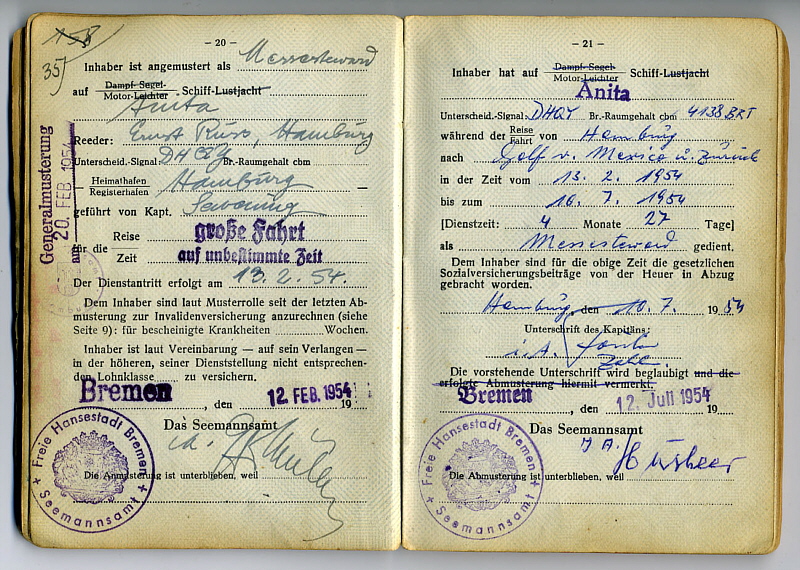 – 20 –
35)
Inhaber ist angemustert als Messesteward
auf Dampf-Segel- Schiff-Lustjacht
Motor-Leichter
Anita
Reeder: Ernst Russ, Hamburg
Unterscheid.-Signal: DHQY Br.-Raumgehalt cbm
Heimathafen Hamburg
Registerhafen
geführt von Kapt.
Reise große Fahrt
für die
Zeit auf unbestimmte Zeit
Der Dienstantritt erfolgt am 13.2.54.
Dem Inhaber sind laut Musterrolle seit der letzten Ab-
musterung zur Invalidenversicherung anzurechnen (siehe
Seite 9): für bescheinigte Krankheiten Wochen.
Inhaber ist laut Vereinbarung — auf sein Verlangen —
in der höheren, seiner Dienststellung nicht entsprechen-
den Lohnklasse zu versichern.
Bremen, den 12. FEB. 1954 19
Das Seemannsamt
i.A.
Die Anmusterung ist unterblieben, weil
Freie Hansestadt Bremen
+ Seemannsamt +
Generalmusterung
am 20. FEB. 1954
– 21 –
Inhaber hat auf Dampf-Segel- Schiff-Lustjacht
Motor-Leichter
Anita
Unterscheid.-Signal: DHQY Br.-Raumgehalt cbm 4138 BRT
während der Reise von Hamburg
Fahrt
nach Golf v. Mexico u. zurück
in der Zeit vom 13. 2. 1954
bis zum 10. 7. 1954
[Dienstzeit: 4 Monate 27 Tage]
als Messesteward gedient.
Dem Inhaber sind für die obige Zeit die gesetzlichen
Sozialversicherungsbeiträge von der Heuer in Abzug
gebracht worden.
Hamburg, den 10.7. 1954
Unterschrift des Kapitäns:
i.A.
Die vorstehende Unterschrift wird beglaubigt und die
erfolgte Abmusterung hiermit vermerkt.
Bremen, den 12. Juli 1954 19
Das Seemannsamt
I A.
Die Abmusterung ist unterblieben, weil
Freie Hansestadt Bremen
+ Seemannsamt +